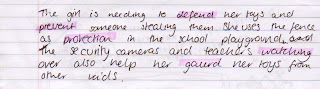 The girl is needing to defend her toys and
prevent someone stealing them. She uses the fence
as protection in the school playground, and
The security cameras and teacher's watching
over also help her gaurd her toys from
other kids.